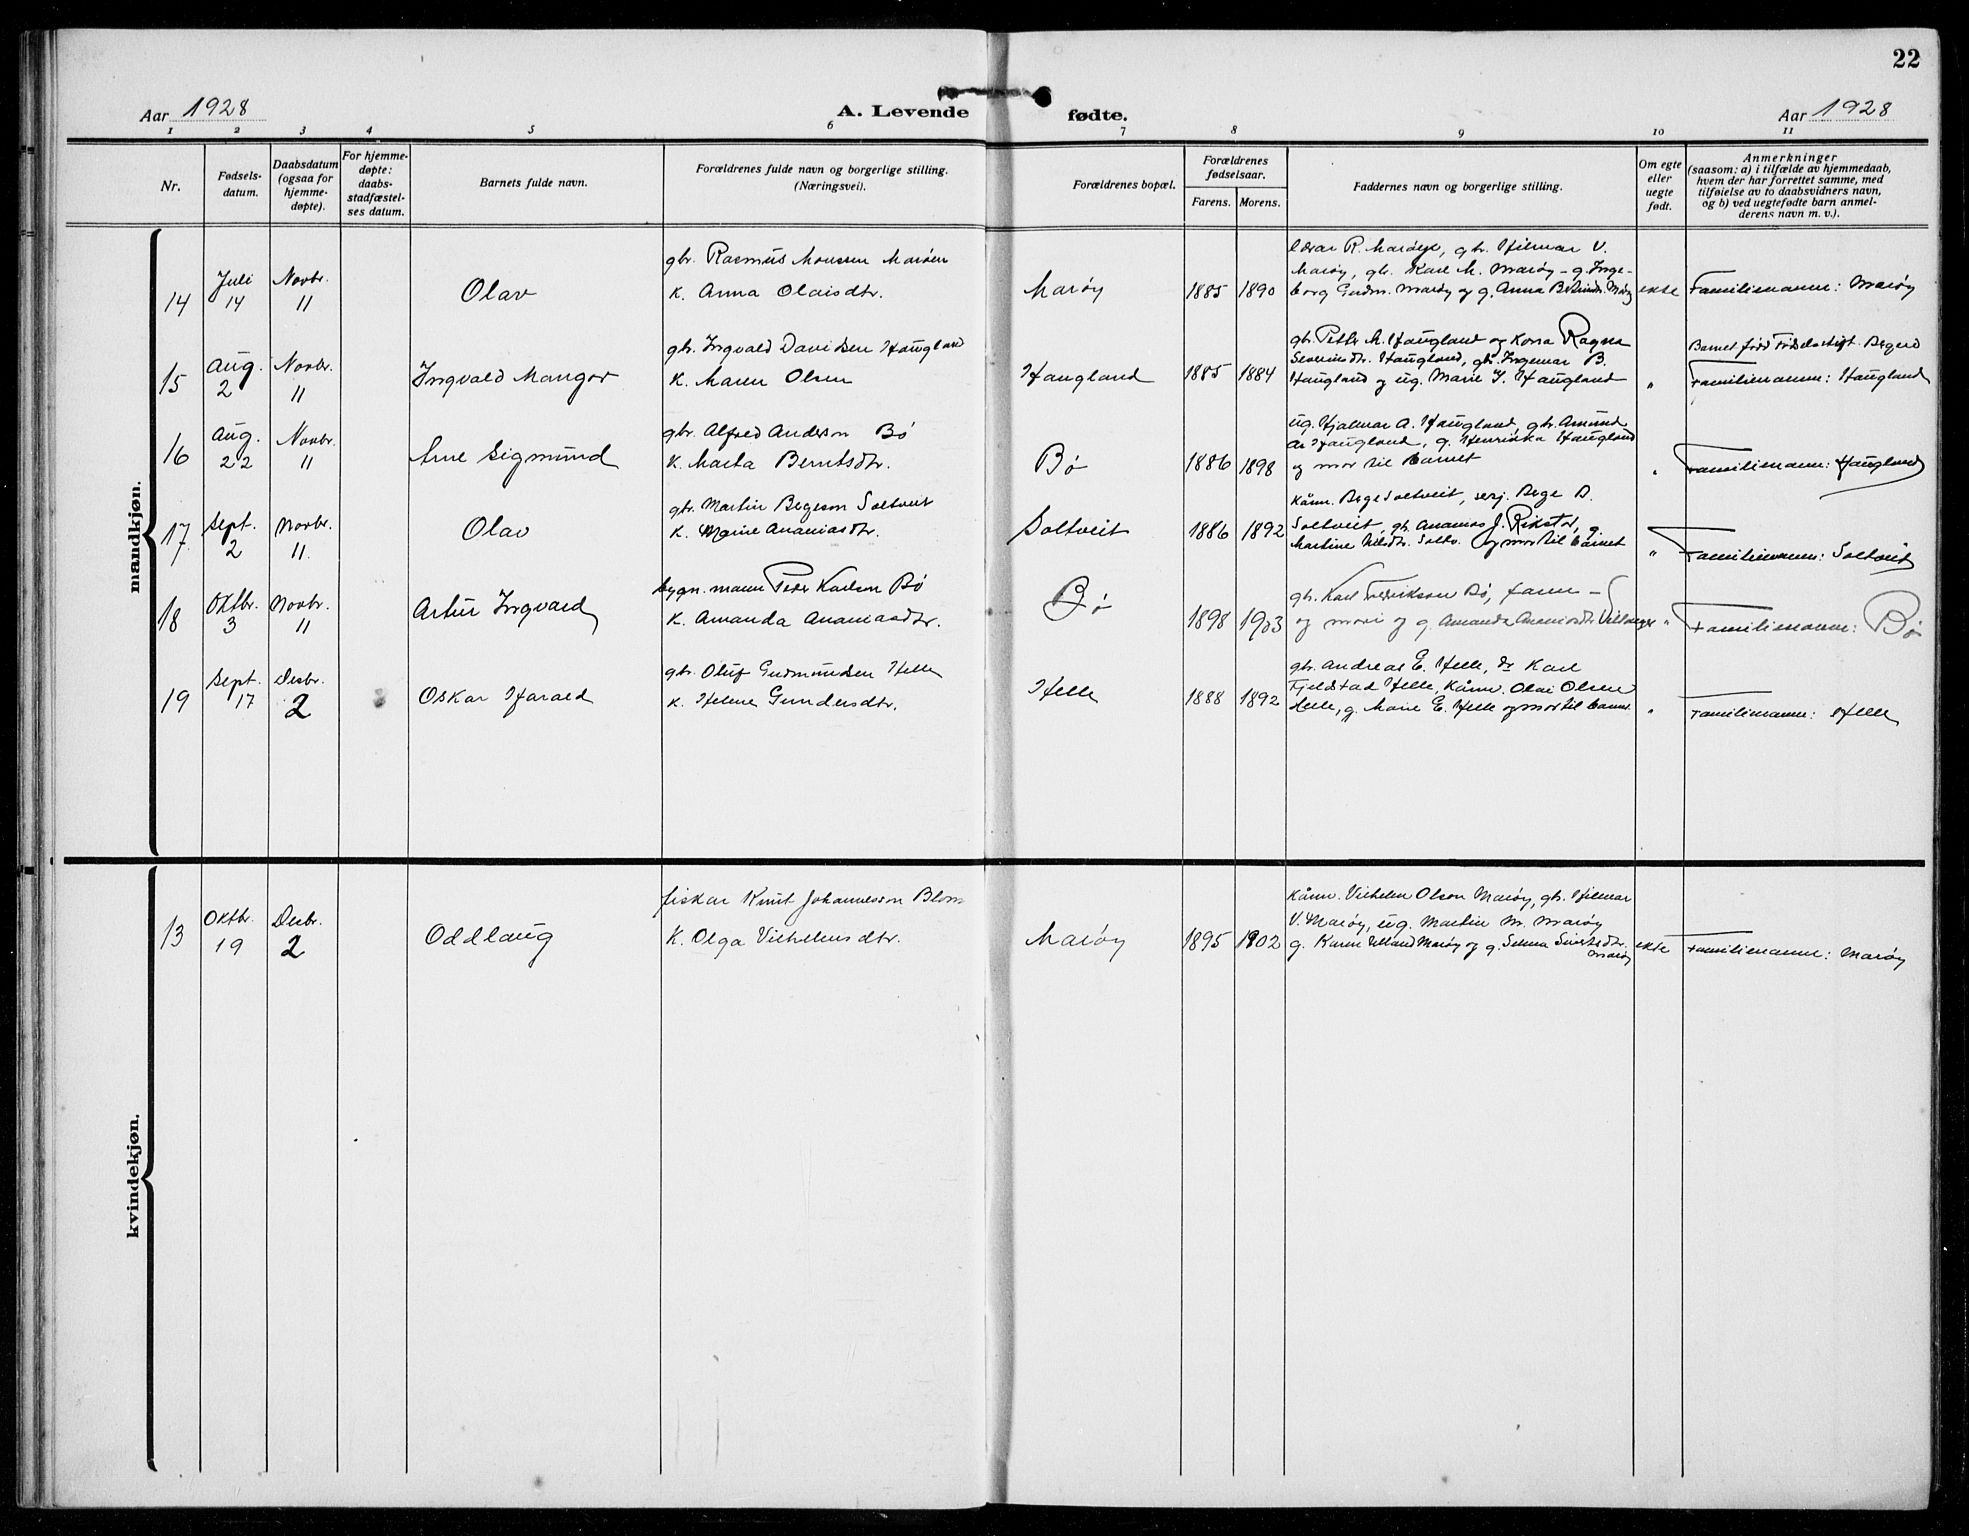 22
Aar 1928
A. Levende
fødte.
Aar 1928
1 2 3 4 5 6 7 8 9 10 11
Nr.
Fødsels-
datum.
Daabsdatum
(ogsaa for
hjemme-
døpte).
For hjemme-
døpte:
daabs-
stadfæstel-
ses datum.
Barnets fulde navn.
Forældrenes fulde navn og borgerlige stilling.
(Næringsvei).
Forældrenes bopæl.
Forældrenes
fødselsaar.
Farens. Morens.
Faddernes navn og borgerlige stilling.
Om egte
eller
uegte
født.
Anmerkninger
(saasom: a) i tilfælde av hjemmedaab,
hvem der har forrettet samme, med
tilføielse av to daabsvidners navn,
og b) ved uegtefødte barn anmel-
derens navn m. v.).
mandkjøn.
14
Juli
14
Novbr.
11
Olav
gbr. Rasmus Monssen Marøen
K. Anna Olaisdtr.
Marøy
1885 1890
lærar R. Marøy, gbr. Hilmar V.
Marøy, gbr. Karl M. Marøy - g. Inge-
borg Gudm. Marøy og g. Anna Marøy
ekte
Familienamn: Marøy
15
Aug.
2
Novbr.
11
Ingvald Mangor
gbr. Ingvald Davidsen Haugland
K. Maren Olsen
Haugland
1885 1884
gbr. Petter M. Haugland og kona Ragna
Severindtr. Haugland, gbr. Ingemar B.
Haugland og ug. Marie I. Haugland
"
Barnet fødd Fødselsstift. Bergen
Familienamn: Haugland
16
Aug.
22
Novbr.
11
Arne Sigmund
gbr. Alfred Anderson Bø
K. Marta Berntsdtr.
Bø
1886 1898
ug. Hjalmar A. Haugland, gbr. Amund
A. Haugland, g. Henrikka Haugland
og mor til barnet
"
Familienamn: Haugland
17
Sept.
2
Novbr.
11.
Olav
gbr. Martin Bergeson Soltveit
K. Marie Ananiasdtr.
Soltveit
1886 1892
Kårm. Berge Soltveit, serj. Berge B.
Soltveit, gbr. Ananias J. Rikstad, g.
Martine Nilsdtr. Soltv. og mor til barnet
"
Familienamn: Soltveit
18
Oktbr.
3
Novbr.
11
Artur Ingvard
bygn. mann Peder Karlson Bø
K. Amanda Ananiasdtr.
Bø
1898 1903
gbr. Karl Fredrikson Bø, faren -
og mori og g. Amanda Ananiasdtr.
"
Familienamn: Bø
19
Sept.
17
Desbr.
2
Oskar Harald
gbr. Oluf Gudmundsen Helle
K. Helene Gundersdtr.
Helle
1888 1892
gbr. Andreas E. Helle, do Karl
Fjeldstad Helle, Kårm. Olai Olsen
Helle, g. Marie E. Helle og mor til barnet.
"
Familienamn: Helle
kvindekjøn.
13
Oktbr.
19
Desbr.
2
Oddlaug
fiskar Knut Johannesson Blom
K. Olga Vilhelmsdtr.
Marøy
1895 1902
Kårm. Vilhelm Olson Marøy, gbr. Hilmar
V. Marøy, ug. Martin M. Marøy
g. Karen Marøy og g. Selma Sivertsdtr.
Marøy
ekte
Familienamn: Marøy